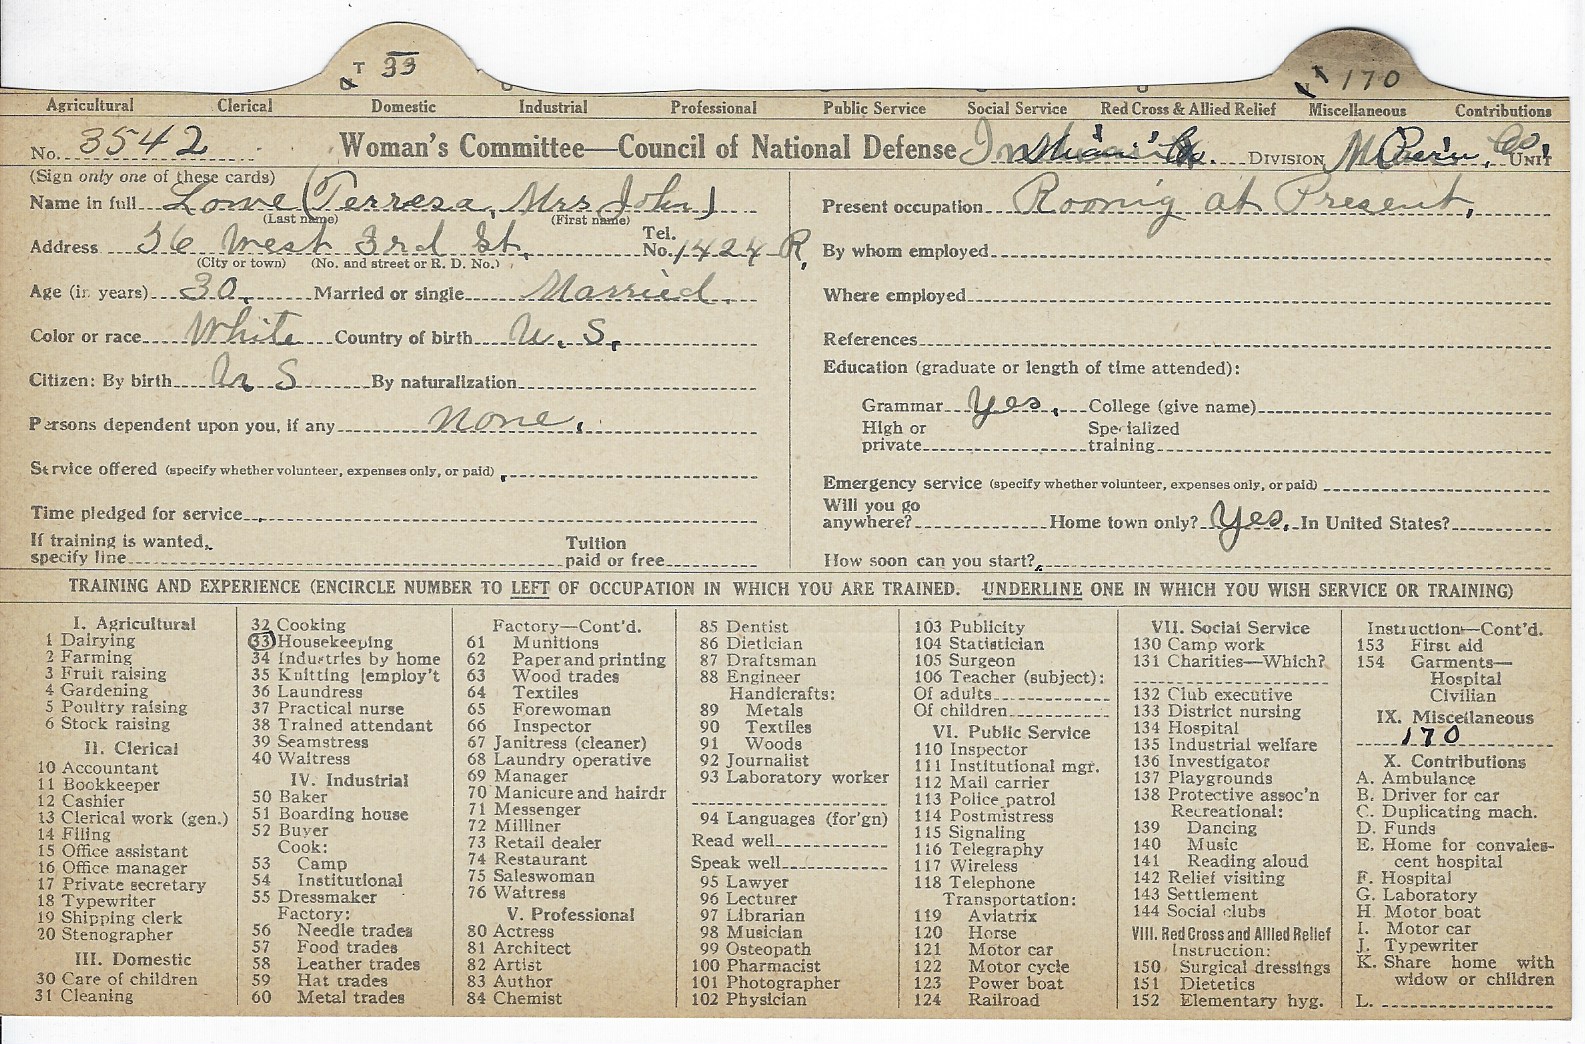 T 33
T 170
Agricultural Clerical Domestic Industrial Professional Public Service Social Service Red Cross & Allied Relief Miscellaneous Contributions
No. 3542 Woman's Committee—Council of National Defense DIVISION Co. UNIT
(Sign only one of these cards)
Name in full Lowe (Terresa, Mrs John)
(Last name) (First name)
Address 36 West 3rd St. Tel. No. 1424-R,
(City or town) (No. and street or R. D. No.)
Age (in years) 30. Married or single Married.
Color or race White Country of birth U. S.
Citizen: By birth U S By naturalization
Persons dependent upon you, if any None.
Service offered (specify whether volunteer, expenses only, or paid)
Time pledged for service
If training is wanted, specify line Tuition paid or free
Present occupation Roomig at Present,
By whom employed
Where employed
References
Education (graduate or length of time attended):
Grammar Yes. College (give name)
High or private Specialized training
Emergency service (specify whether volunteer, expenses only, or paid)
Will you go anywhere? Home town only? Yes. In United States?
How soon can you start?
TRAINING AND EXPERIENCE (ENCIRCLE NUMBER TO LEFT OF OCCUPATION IN WHICH YOU ARE TRAINED. UNDERLINE ONE IN WHICH YOU WISH SERVICE OR TRAINING)
I. Agricultural
1 Dairying
2 Farming
3 Fruit raising
4 Gardening
5 Poultry raising
6 Stock raising
II. Clerical
10 Accountant
11 Bookkeeper
12 Cashier
13 Clerical work (gen.)
14 Filing
15 Office assistant
16 Office manager
17 Private secretary
18 Typewriter
19 Shipping clerk
20 Stenographer
III. Domestic
30 Care of children
31 Cleaning
32 Cooking
33 Housekeeping
34 Industries by home
35 Knitting [employ't
36 Laundress
37 Practical nurse
38 Trained attendant
39 Seamstress
40 Waitress
IV. Industrial
50 Baker
51 Boarding house
52 Buyer
Cook:
53 Camp
54 Institutional
55 Dressmaker
Factory:
56 Needle trades
57 Food trades
58 Leather trades
59 Hat trades
60 Metal trades
Factory—Cont'd.
61 Munitions
62 Paper and printing
63 Wood trades
64 Textiles
65 Forewoman
66 Inspector
67 Janitress (cleaner)
68 Laundry operative
69 Manager
70 Manicure and hairdr
71 Messenger
72 Milliner
73 Retail dealer
74 Restaurant
75 Saleswoman
76 Waitress
V. Professional
80 Actress
81 Architect
82 Artist
83 Author
84 Chemist
85 Dentist
86 Dietician
87 Draftsman
88 Engineer
Handicrafts:
89 Metals
90 Textiles
91 Woods
92 Journalist
93 Laboratory worker
94 Languages (for'gn)
Read well
Speak well
95 Lawyer
96 Lecturer
97 Librarian
98 Musician
99 Osteopath
100 Pharmacist
101 Photographer
102 Physician
103 Publicity
104 Statistician
105 Surgeon
106 Teacher (subject):
Of adults
Of children
VI. Public Service
110 Inspector
111 Institutional mgr.
112 Mail carrier
113 Police patrol
114 Postmistress
115 Signaling
116 Telegraphy
117 Wireless
118 Telephone
Transportation:
119 Aviatrix
120 Horse
121 Motor car
122 Motor cycle
123 Power boat
124 Railroad
VII. Social Service
130 Camp work
131 Charities—Which?
132 Club executive
133 District nursing
134 Hospital
135 Industrial welfare
136 Investigator
137 Playgrounds
138 Protective assoc'n
Recreational:
139 Dancing
140 Music
141 Reading aloud
142 Relief visiting
143 Settlement
144 Social clubs
VIII. Red Cross and Allied Relief
Instruction:
150 Surgical dressings
151 Dietetics
152 Elementary hyg.
Instruction—Cont'd.
153 First aid
154 Garments—
Hospital
Civilian
IX. Miscellaneous
170
X. Contributions
A. Ambulance
B. Driver for car
C. Duplicating mach.
D. Funds
E. Home for convales-
cent hospital
F. Hospital
G. Laboratory
H. Motor boat
I. Motor car
J. Typewriter
K. Share home with
widow or children
L.